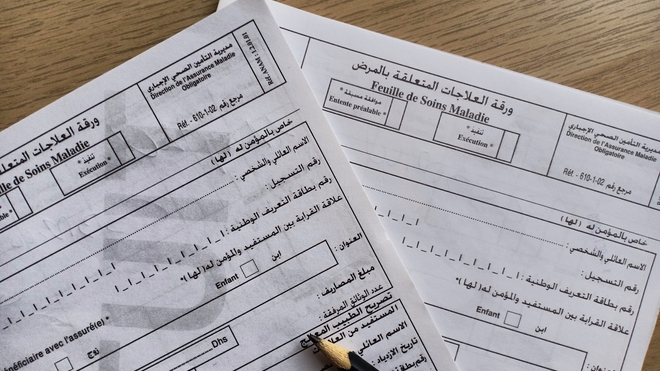 مديرية التأمين الصحي الإجباري
Direction de l'Assurance Maladie
Obligatoire
مرجع رقم Réf. -610-1-02
Réf. ANAM : 1.2.01.01
ورقة العلاجات المتعلقة
Feuille de Soins Maladie
* تنفيذ
Exécution *
خاص بالمؤمن له (لها)
الاسم العائلي والشخصي :
رقم التسجيل :
رقم بطاقة التعريف الوطنية :
علاقة القرابة بين المستفيد والمؤمن له( لها)*
ابن Enfant
العنوان :
مبلغ المصاريف :
Dhs
عدد الوثائق المرفقة :
تصريح الطبيب المعالج
المستفيد من العلاجات
الاسم العائلي
تاريخ الازدياد :
رقم بطاقة
bénéficiaire avec l'assuré(e)*
زوج
ورقة العلاجات المتعلقة بالمرض
Feuille de Soins Maladie
* موافقة مسبقة
Entente préalable *
* تنفيذ
Exécution *
مديرية التأمين الصحي الإجباري
Direction de l'Assurance Maladie
Obligatoire
مرجع رقم Réf. - 610-1-02
خاص بالمؤمن له ( لها)
الاسم العائلي والشخصي :
رقم التسجيل :
رقم بطاقة التعريف الوطنية :
علاقة القرابة بين المستفيد والمؤمن له( لها)*
ابن Enfant
العنوان :